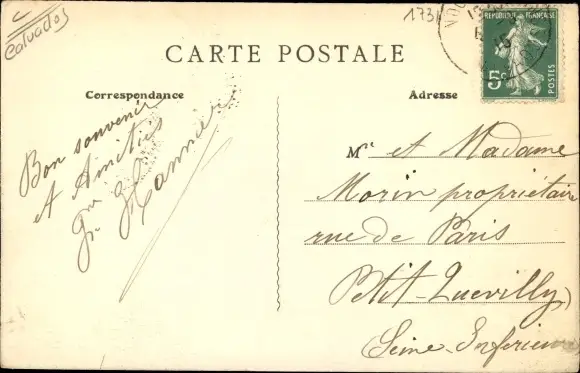 Calvados
173
RÉPUBLIQUE FRANÇAISE
5c
POSTES
CARTE POSTALE
Correspondance
Adresse
Bon souvenir
et Amitiés
Mr et Madame
Morin propriétaire
rue de Paris
Petit-Quevilly
Seine-Inférieure